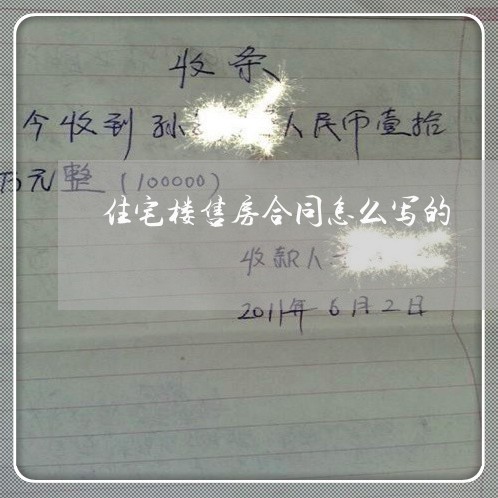 收条
今收到孙 人民币壹拾
万元整(100000)
住宅楼售房合同怎么写的
收款人
2011年6月2日